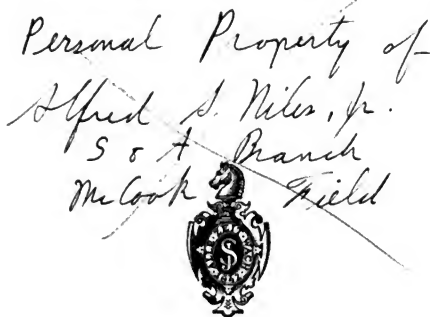 Personal Property of
Alfred S. Niles, Jr.
S & A Branch
McCook Field